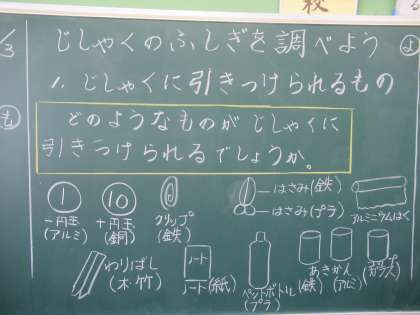 じしゃくのふしぎを調べよう
1. じしゃくに引きつけられるもの
も
どのようなものがじしゃくに
引きつけられるでしょうか。
1
一円玉
(アルミ)
10
十円玉
(銅)
クリップ
(鉄)
はさみ(鉄)
はさみ(プラ)
アルミニウムはく
わりばし
(木・竹)
ノート
ノート(紙)
ペットボトル
(プラ)
あきかん
(鉄)
(アルミ)
ガラス